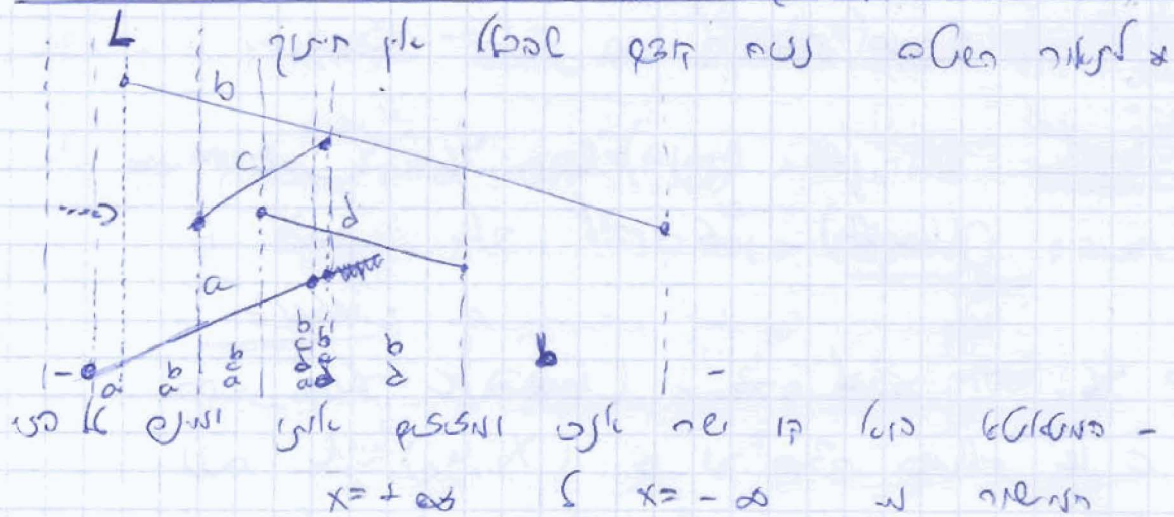 * לתאור השיטה נניח קודם שבכלל אין חיתוך
L
b
c
d
a
- a b a b c a b c d a b c d b d b -
- המטאטא הוא קו ישר אנכי ומזיזים אותו ימינה על פני
המישור מ x = -∞ ל x = +∞